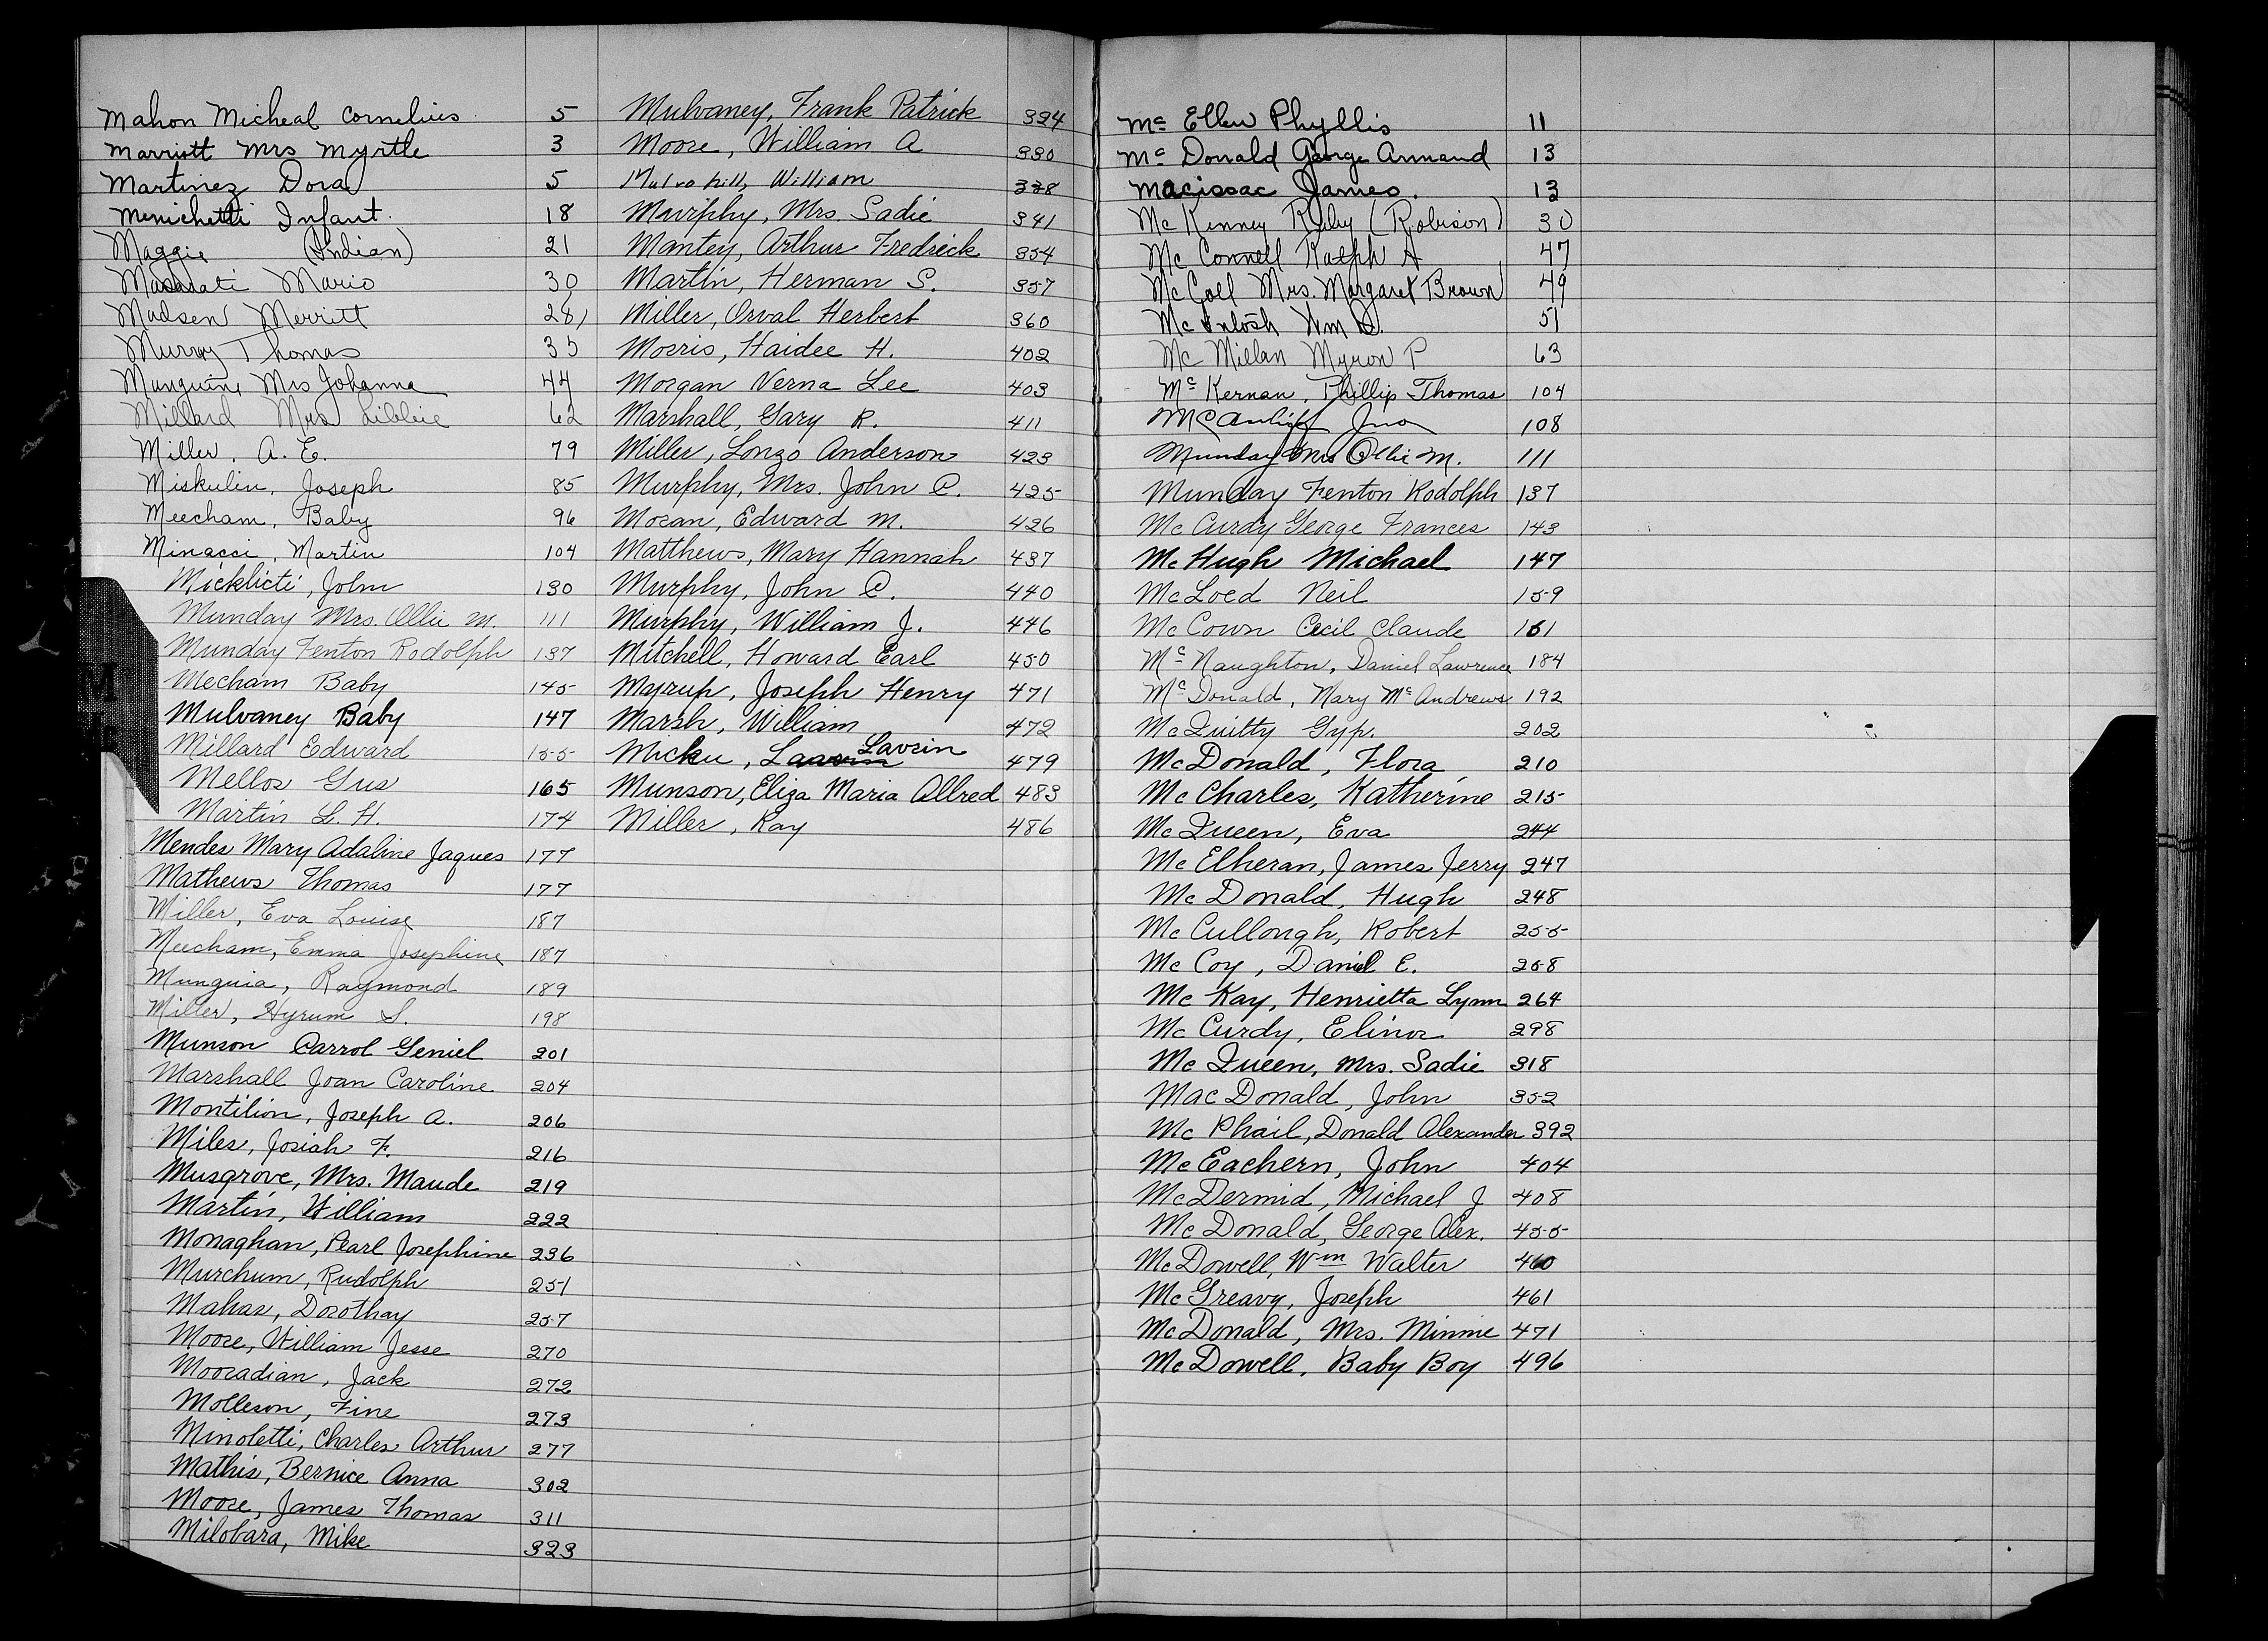 Mahon Micheal Cornelius 5
Marriott Mrs Myrtle 3
Martinez Dora 5
Menichetti Infant 18
Maggie (Indian) 21
Mario 30
Madsen Merritt 281
Murray Thomas 35
Munguine Mrs Johanna 44
Millard Mrs Libbie 62
Miller. A. E. 79
Miskulin, Joseph 85
Meecham, Baby 96
Minacci, Martin 104
Micklicti, John 130
Munday Mrs. Ollie M. 111
Munday Fenton Rodolph 137
Mecham Baby 145
Mulvaney Baby 147
Millard Edward 155
Mellos Gus 165
Martin L. H. 174
Mendes Mary Adaline Jaques 177
Mathews Thomas 177
Miller, Eva Louise 187
Meecham, Emma Josephine 187
Munguia, Raymond 189
Miller, Hyrum S. 198
Munson Carrol Geniel 201
Marshall Joan Caroline 204
Montilion, Joseph A. 206
Miles, Josiah F. 216
Musgrove, Mrs. Maude 219
Martin, William 222
Monaghan, Pearl Josephine 236
Murchum, Rudolph 251
Mahas, Dorothay 257
Moore, William Jesse 270
Mooradian, Jack 272
Molleson, Fine 273
Minoletti, Charles Arthur 277
Mathis, Bernice Anna 302
Moore, James Thomas 311
Milobara, Mike 323
Mulvaney, Frank Patrick 324
Moore, William A 330
Mulvahill, William 338
Murphy, Mrs. Sadie 341
Mantey, Arthur Fredrick 354
Martin, Herman S. 357
Miller, Orval Herbert 360
Morris, Haidee H. 402
Morgan Verna Lee 403
Marshall, Gary R. 411
Miller, Lonzo Anderson 423
Murphy, Mrs. John C. 425
Moran, Edward M. 426
Matthews, Mary Hannah 437
Murphy, John C. 440
Murphy, William J. 446
Mitchell, Howard Earl 450
Majrup, Joseph Henry 471
Marsh, William 472
Micku, Lavrin 479
Munson, Eliza Maria Allred 483
Miller, Kay 486
Mc Ellen Phyllis 11
Mc Donald George Armand 13
Macissac James. 13
Mc Kinney Ryley (Robison) 30
Mc Connell Ralph A 47
Mc Coll Mrs. Margaret Brown 49
Mc Intosh Wm D. 51
Mc Millan Myron P 63
Mc Kernan, Phillip Thomas 104
McAuliff Jno 108
Munday Mrs Ollie M. 111
Munday Fenton Rodolph 137
Mc Curdy George Frances 143
Mc Hugh Michael 147
Mc Loed Neil 159
Mc Cown Cecil Claude 161
Mc Naughton, Daniel Lawrence 184
Mc Donald, Mary McAndrews 192
Mc Quitty Gyp. 202
Mc Donald, Flora 210
Mc Charles, Katherine 215
Mc Queen, Eva 244
Mc Elheran, James Jerry 247
Mc Donald, Hugh 248
Mc Cullough, Robert 255
Mc Coy, Daniel E. 258
Mc Kay, Henrietta Lynn 264
Mc Curdy, Elinor 298
Mc Queen, Mrs. Sadie 318
Mac Donald, John 352
Mc Phail, Donald Alexander 392
Mc Eachern, John 404
McDermid, Michael J 408
Mc Donald, George Alex. 455
McDowell, Wm Walter 460
Mc Greavy, Joseph 461
McDonald, Mrs. Minnie 471
McDowell, Baby Boy 496
M